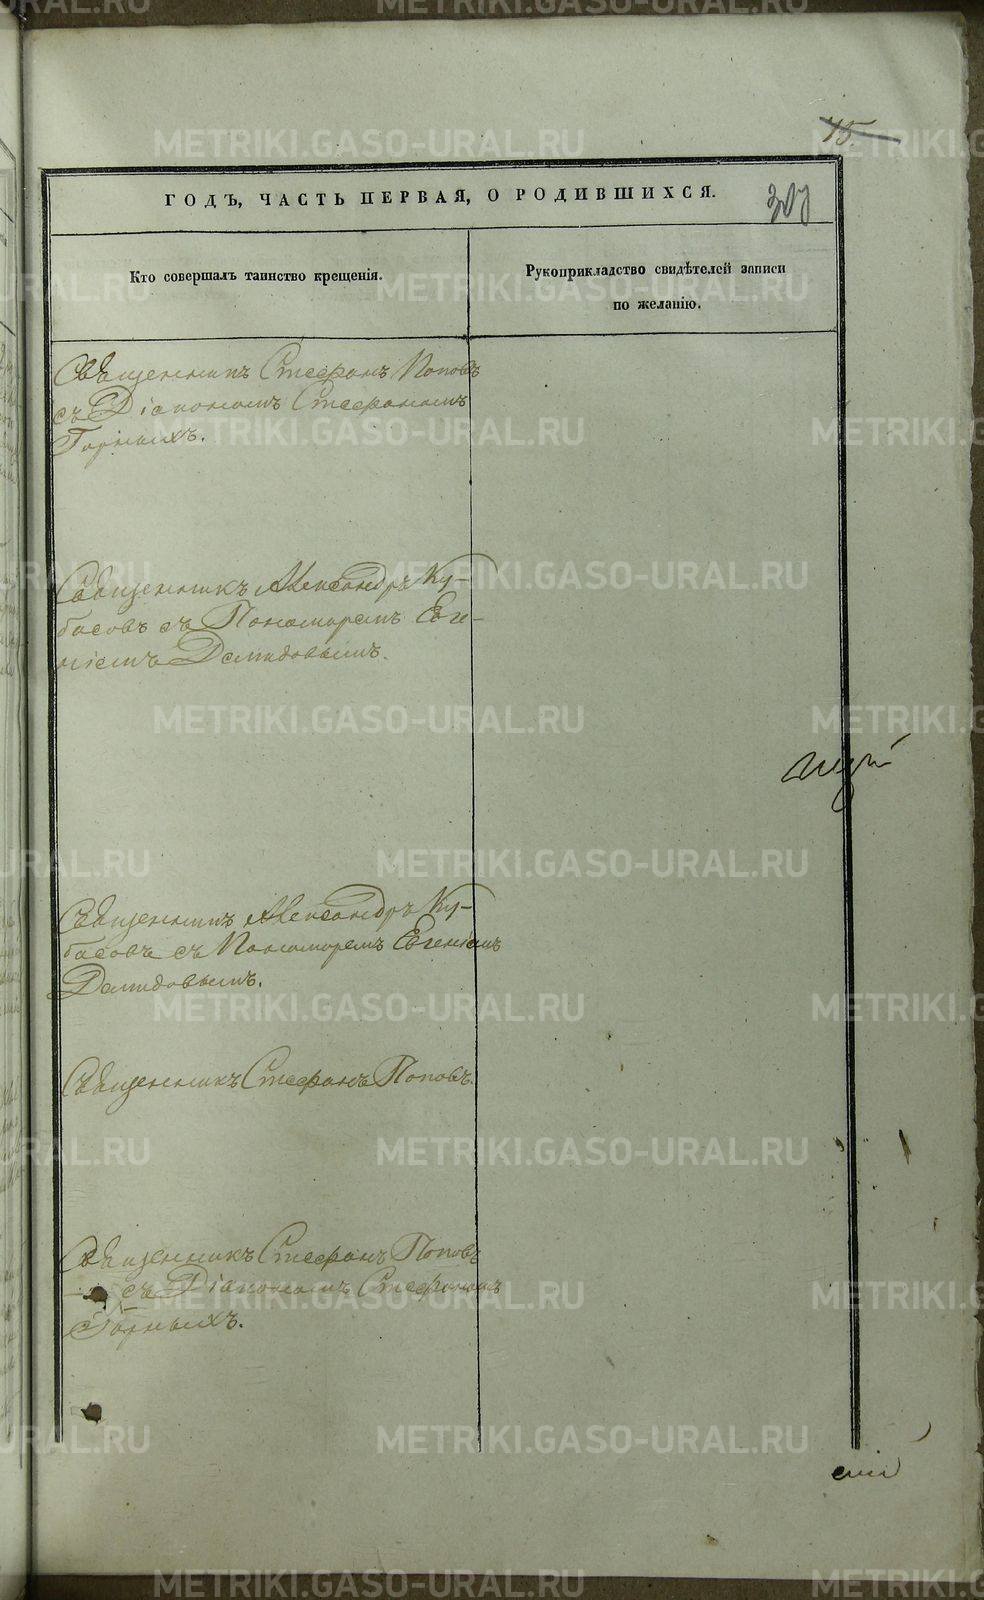 15.
ГОДЪ, ЧАСТЬ ПЕРВАЯ, О РОДИВШИХСЯ.
Кто совершалъ таинство крещенія.
Рукоприкладство свидѣтелей записи
по желанію.
Священникъ Стефанъ Поповъ
съ Діакономъ Стефаномъ
Горныхъ.
Священникъ Александръ Ку-
басовъ съ Пономаремъ Евге-
ніемъ Демидовымъ.
Священникъ Александръ Ку-
басовъ съ Пономаремъ Евгеніемъ
Демидовымъ.
Священникъ Стефанъ Поповъ.
Священникъ Стефанъ Поповъ
съ Діакономъ Стефаномъ
Горныхъ.
METRIKI.GASO-URAL.RU